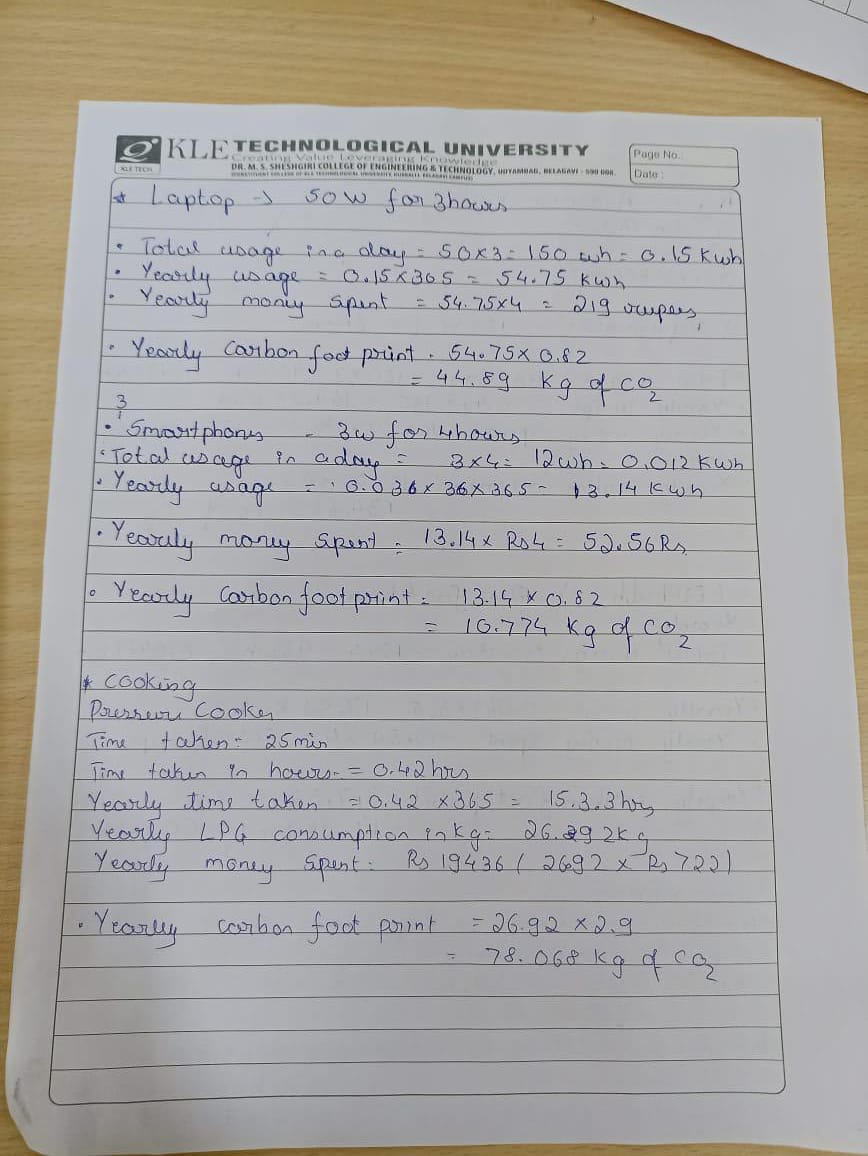 KLE TECH
KLE TECHNOLOGICAL UNIVERSITY
Creating Value Leveraging Knowledge
DR. M. S. SHESHGIRI COLLEGE OF ENGINEERING & TECHNOLOGY, UDYAMBAG, BELAGAVI - 590 008.
Page No.:
Date :
* Laptop → 50W for 3hours
• Total usage in a day = 50x3 = 150 wh = 0.15 Kwh
• Yearly usage = 0.15x365 = 54.75 Kwh
• Yearly money spent = 54.75x4 = 219 rupees
• Yearly Carbon foot print. 54.75x 0.82
= 44.89 Kg of CO2
3
• Smartphones - 3w for 4hours
• Total usage in a day = 3x4= 12wh = 0.012 Kwh
• Yearly usage = 0.036x 36x365 = 13.14 Kwh
• Yearly money Spent = 13.14x Rs4 = 52.56Rs
• Yearly Carbon footprint = 13.14 x 0.82
= 10.774 Kg of CO2
* Cooking
Pressure Cooker
Time taken = 25min
Time taken in hours = 0.42hrs
Yearly time taken = 0.42 x365 = 15.3.3hrs
Yearly LPG consumption in kg = 26.92Kg
Yearly money Spent: Rs 19436 ( 2692 x Rs 722)
• Yearly carbon foot print = 26.92 x2.9
= 78.068 Kg of CO2